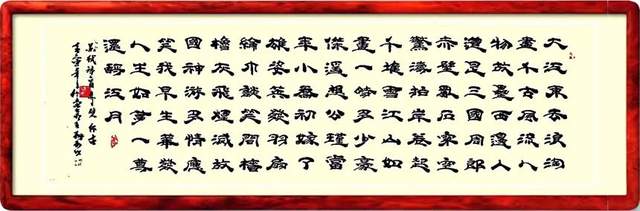 大江東去浪淘
盡千古風流人
物故壘西邊人
道是三國周郎
赤壁亂石穿空
驚濤拍岸卷起
千堆雪江山如
畫一時多少豪
傑遙想公瑾當
年小喬初嫁了
雄姿英發羽扇
綸巾談笑間檣
櫓灰飛煙滅故
國神遊多情應
笑我早生華發
人生如夢一尊
還酹江月